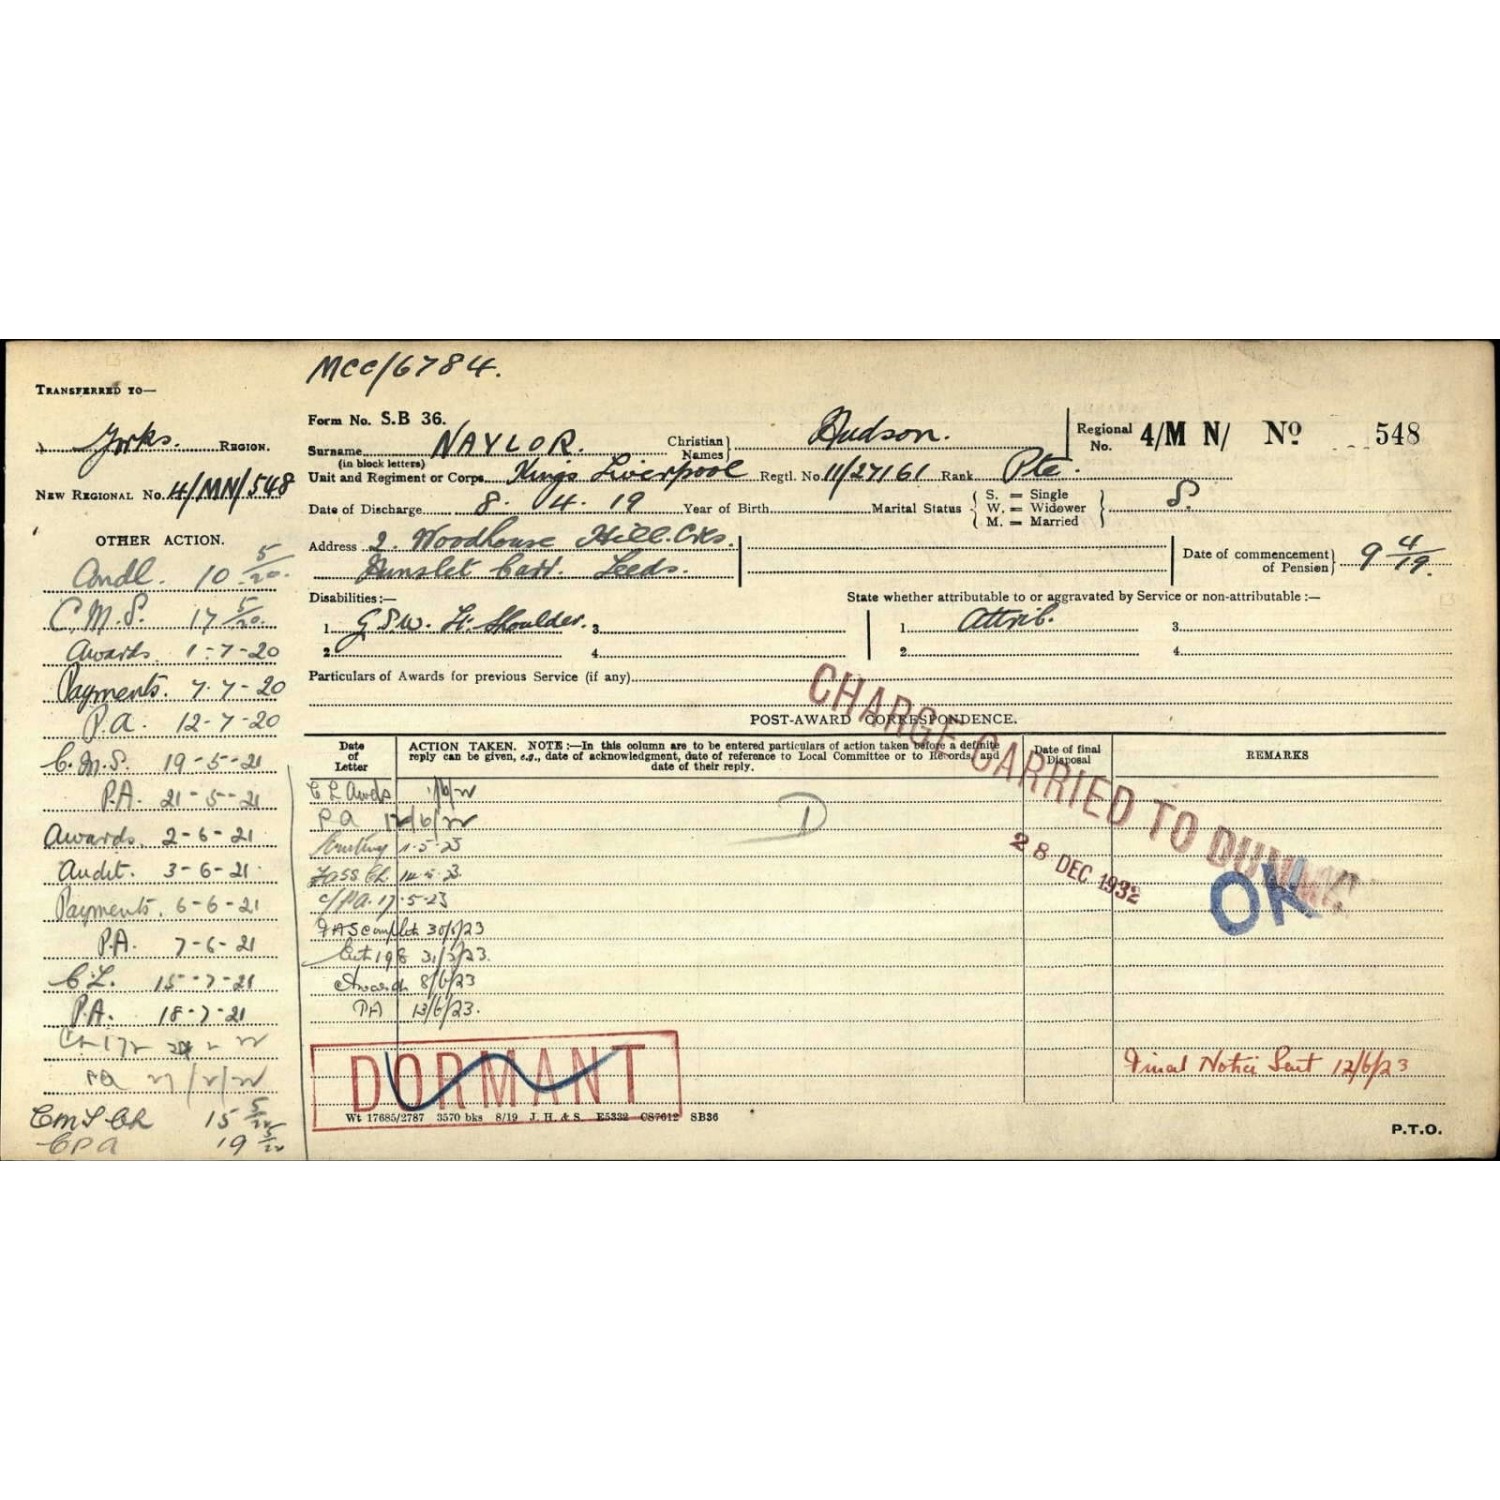 MCC/6784.
TRANSFERRED TO—
Yorks. REGION.
NEW REGIONAL No. 4/MN/548
OTHER ACTION.
10 5/20.
C.M.S. 17 5/20.
Awards. 1-7-20
Payments. 7.7-20
P.A. 12-7-20
C.M.S. 19-5-21
P.A. 21-5-21
Awards. 2-6-21
Audit. 3-6-21.
Payments. 6-6-21
P.A. 7-6-21
C.L. 15-7-21
P.A. 18-7-21
PA
15 5/22
CPA 19 5/22
Form No. S.B 36.
Surname NAYLOR. Christian Names} Hudson. Regional No. 4/M N/ No 548
(in block letters)
Unit and Regiment or Corps Kings Liverpool Regtl. No. 11/27161 Rank Pte.
Date of Discharge 8. 4. 19 Year of Birth Marital Status { S. = Single W. = Widower M. = Married } S.
Address 2. Woodhouse Hill. Cres.
Hunslet Carr. Leeds.
Date of commencement of Pension} 9 4/19.
Disabilities:— State whether attributable to or aggravated by Service or non-attributable:—
1. G.S.W. Lt. Shoulder. 3. 1. Attrib. 3.
2. 4. 2. 4.
Particulars of Awards for previous Service (if any)
POST-AWARD CORRESPONDENCE.
Date of Letter
ACTION TAKEN. NOTE:—In this column are to be entered particulars of action taken before a definite
reply can be given, e.g., date of acknowledgment, date of reference to Local Committee or to Records, and
date of their reply.
Date of final Disposal
REMARKS
CHARGE CARRIED TO
28 DEC 1932
OK
D
C L Awds 1/6/22
PA 12/6/22
1-5-23
14-5-23
17-5-23
30/5/23
31/5/23.
Awards 8/6/23
PA 13/6/23.
Final Notice Sent 12/6/23
DORMANT
Wt 17685/2787 3570 bks 8/19 J. H. & S. E5332 CS7612 SB36
P.T.O.